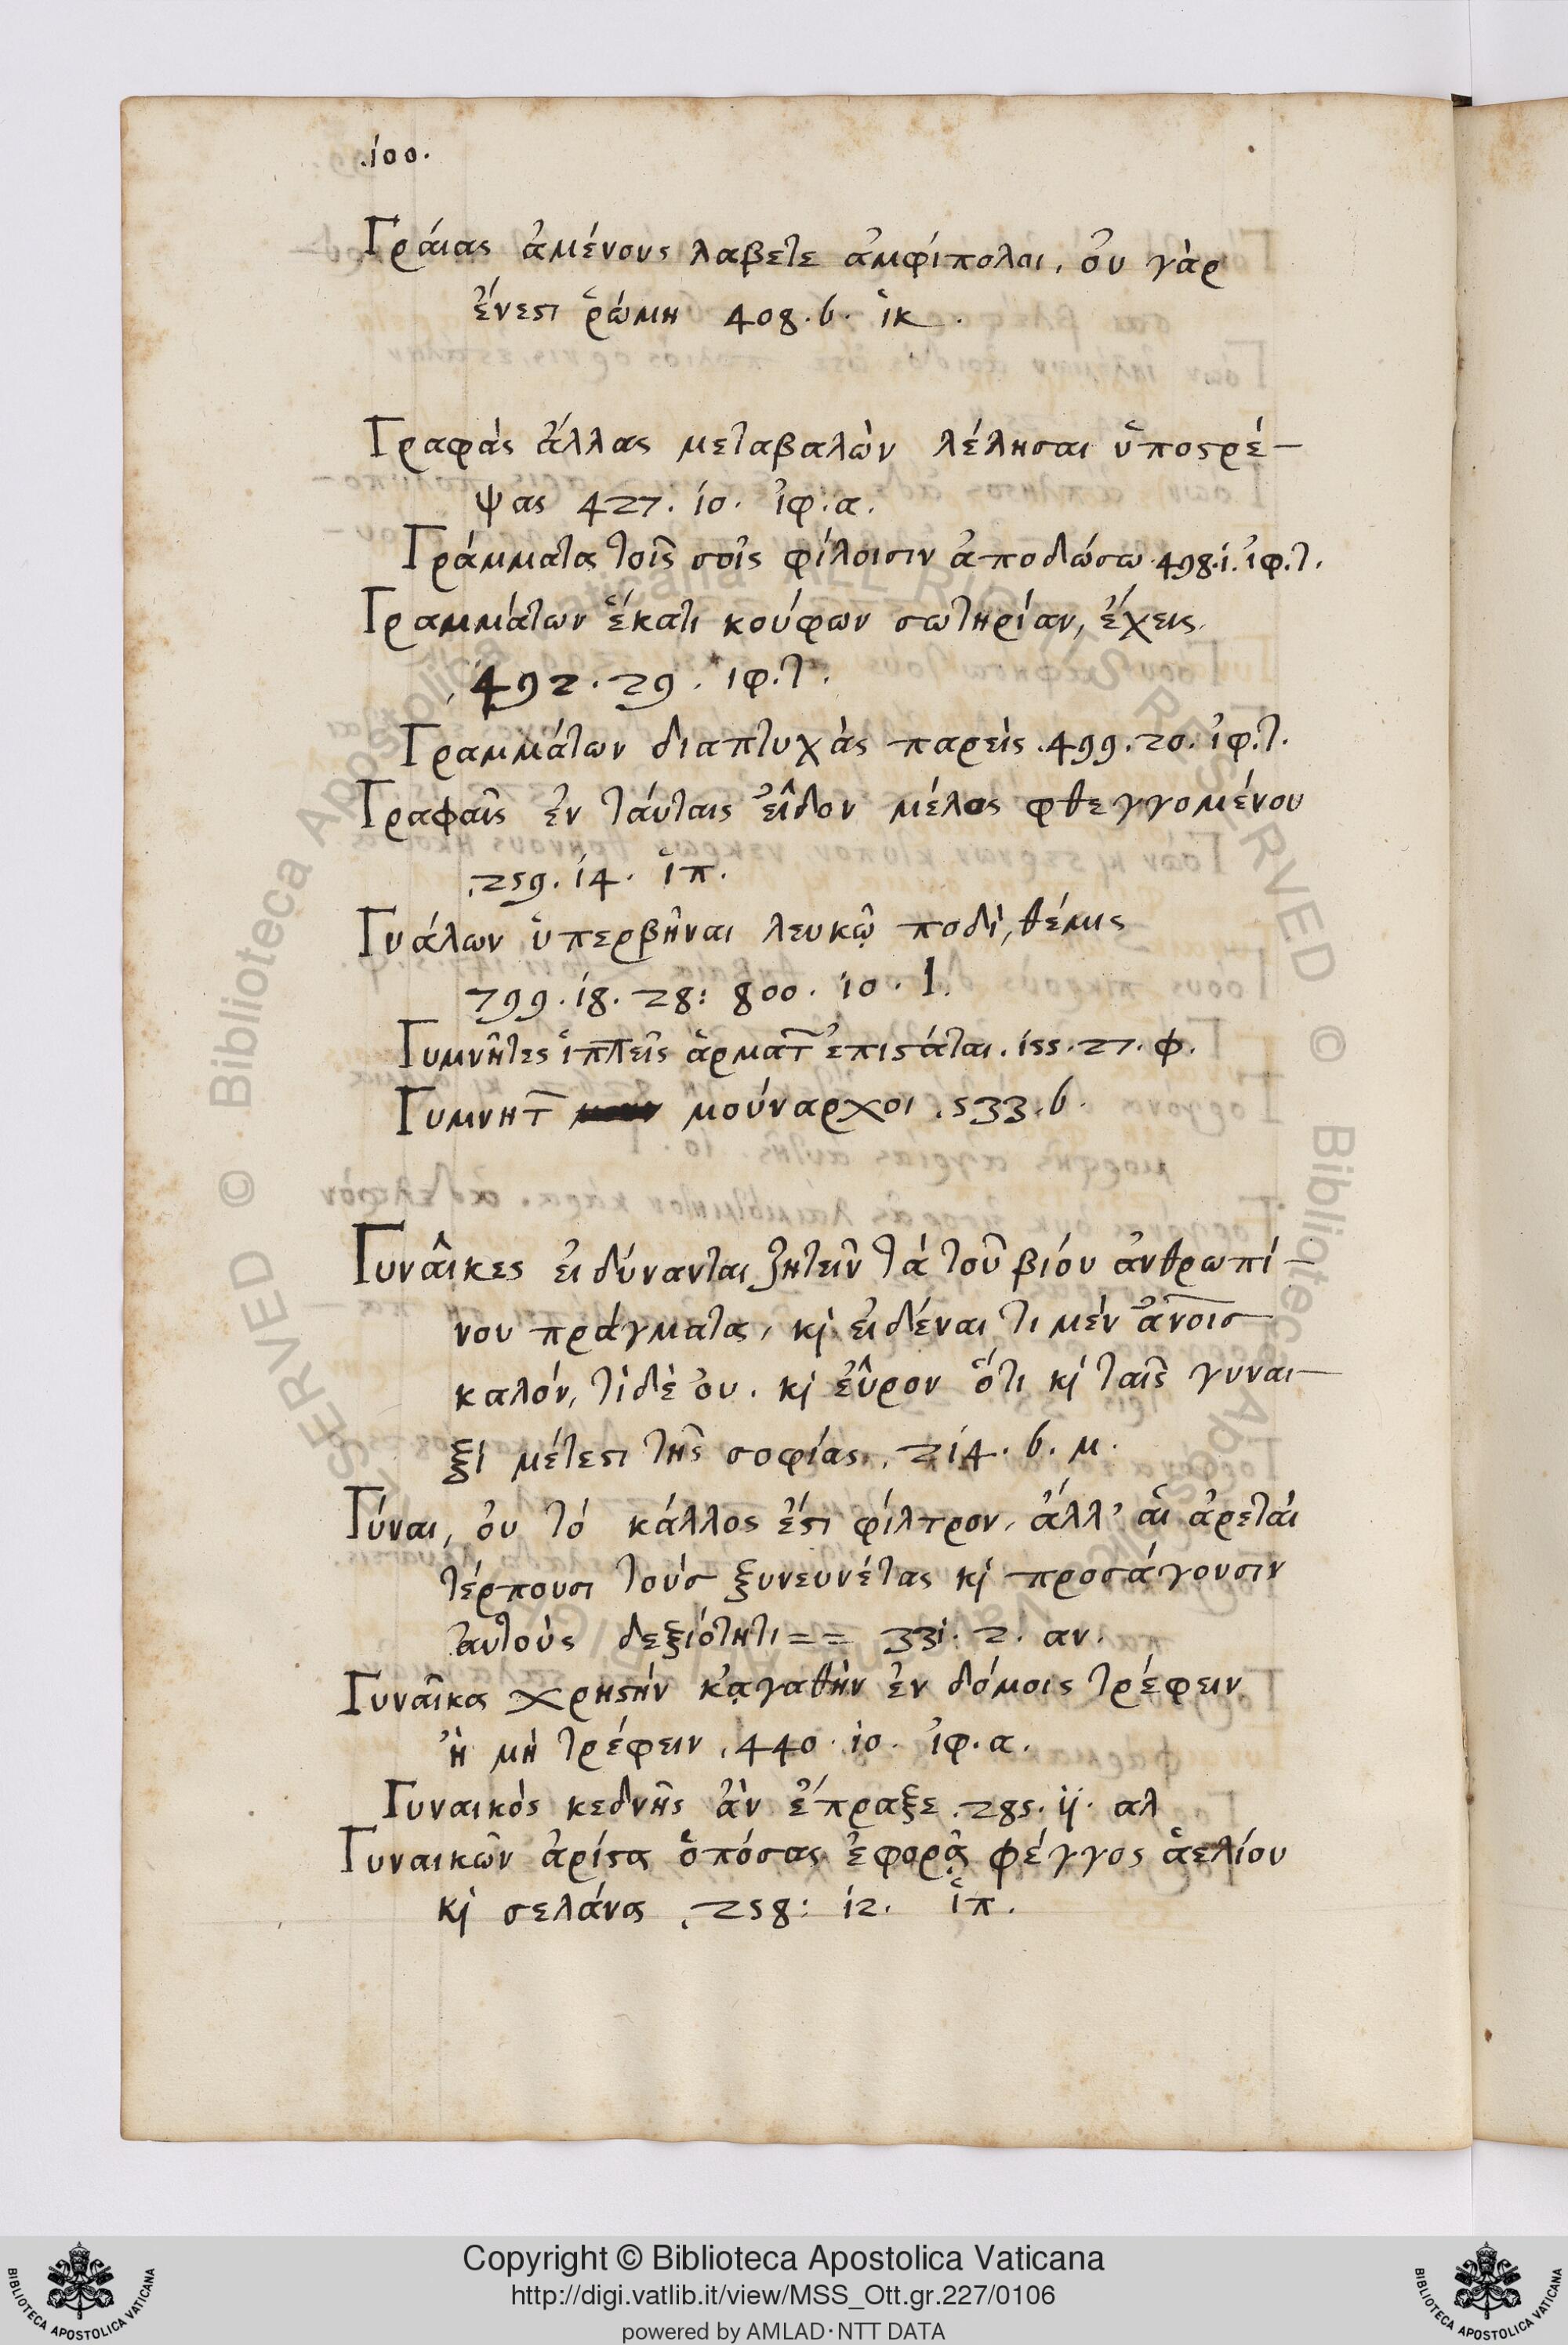 .100.
Γράιας ἀμένους λαβετε ἀμφίπολοι, ὀυ γὰρ
ἔνεϛι ῥώμη 408. 6. ἱκ.
Γραφὰς ἄλλας μεταβαλὼν λέλησαι ὑποϛρέ-
ψας 427. 10. ἰφ. α.
Γράμματα τοῖς σοῖς φίλοισιν ἀποδώσω. 498. 1. ἰφ. τ.
Γραμμάτων ἕκατι κούφων σωτηρίαν, ἔχεις.
492. 29. ιφ. τ.
Γραμμάτων διαπτυχὰς παρεὶς. 499. 20. ἰφ. τ.
Γραφαῖς ἐν τάυταις εἶδον μέλος φθεγγομένου
.259. 14. ἱπ.
Γυάλων ὑπερβῆναι λευκῷ ποδὶ, θέμις
799. 18. 28: 800. 10. Ι.
Γυμνῆτες ἱππεῖς ἁρματ̅ ἐπιϛάται. 155. 27. φ.
Γυμνητ̅ μούναρχοι. 533. 6.
Γυναῖκες ἐι δύνανται ζητεῖν τὰ τοῦ βιόυ ἀνθρωπί-
νου πράγματα, κὶ ἐιδέναι τι μὲν ἀν̅οισ
καλόν, τὶ δὲ ὀυ. κὶ εὗρον ὅτι κὶ ταῖς γυναι-
ξὶ μέτεϛι τῆς σοφίας. 214. 6. μ.
Γύναι, ὀυ τό κάλλος ἐϛι φίλτρον, ἀλλ' ἁι ἀρετὰι
τέρπουσι τοὺσ ξυνευνέτας κὶ προσάγουσιν
αυτοὺς δεξιότητι == 331. 2. αν.
Γυναῖκα χρηϛήν κᾀγαθὴν ἐν δόμοις τρέφειν
ἢ μὴ τρέφειν. 440. 10. ἰφ. α.
Γυναικὸς κεδνῆς ἂν ἔπραξε. 285. ij. αλ
Γυναικῶν ἀρίϛα ὁπόσας ἐφορᾷ φέγγος ἁελίου
κὶ σελάνα. 258: 12. ἱπ.
Copyright © Biblioteca Apostolica Vaticana
http://digi.vatlib.it/view/MSS_Ott.gr.227/0106
powered by AMLAD·NTT DATA